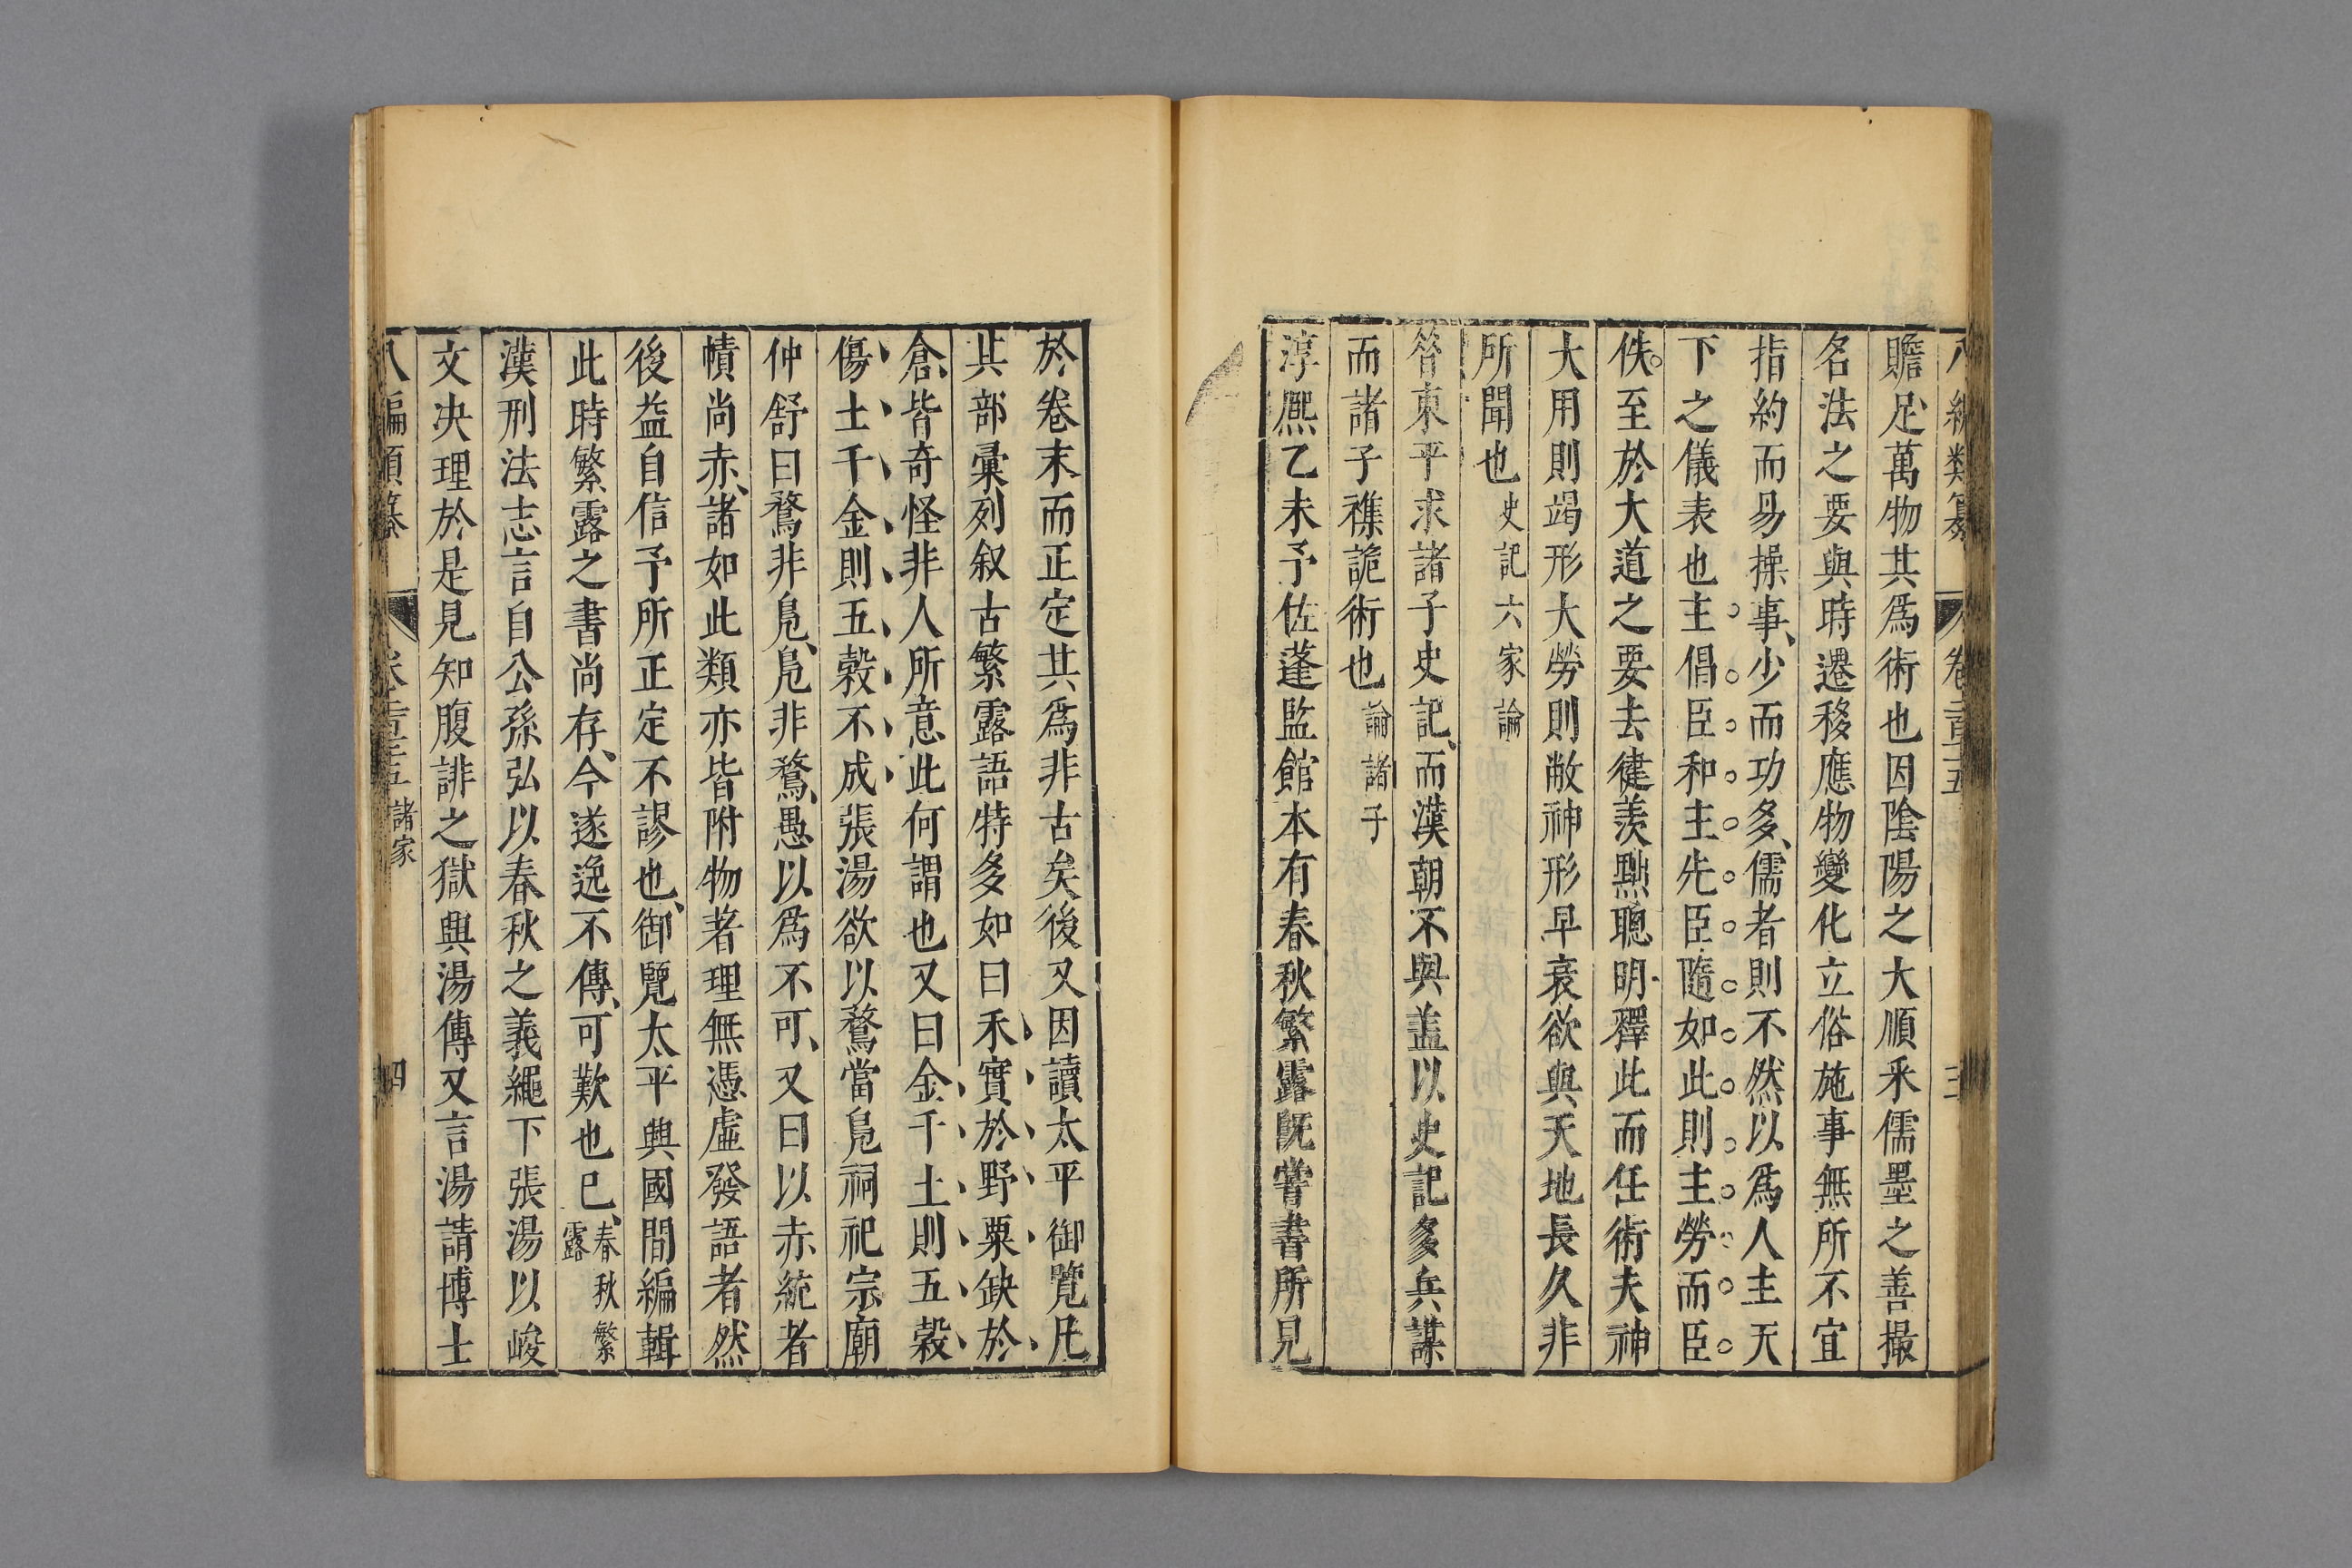 八編類纂 卷二百二十五 三
贍足萬物其爲術也因陰陽之大順采儒墨之善撮
名法之要與時遷移應物變化立俗施事無所不宜
指約而易操事少而功多儒者則不然以爲人主天
下之儀表也主倡臣和主先臣隨如此則主勞而臣
佚至於大道之要去健羨黜聰明釋此而任術夫神
大用則竭形大勞則敝神形早衰欲與天地長久非
所聞也史記六家論
晉東平求諸子史記而漢朝不與盖以史記多兵謀
而諸子襍詭術也論諸子
淳熈乙未予佐蓬監館本有春秋繁露旣嘗書所見
於卷末而正定其爲非古矣後又因讀太平御覽凡
其部彙列叙古繁露語特多如曰禾實於野粟缺於
倉皆奇怪非人所意此何謂也又曰金干土則五穀
傷土干金則五穀不成張湯欲以鶩當鳧祠祀宗廟
仲舒曰鶩非鳧鳧非鶩愚以爲不可又曰以赤統者
幘尚赤諸如此類亦皆附物著理無憑虛發語者然
後益自信予所正定不謬也御覽太平興國間編輯
此時繁露之書尚存今遂逸不傳可歎也已春秋繁露
漢刑法志言自公孫弘以春秋之義繩下張湯以峻
文决理於是見知腹誹之獄興湯傳又言湯請博士
八編類纂 卷二百二十五 諸家 四